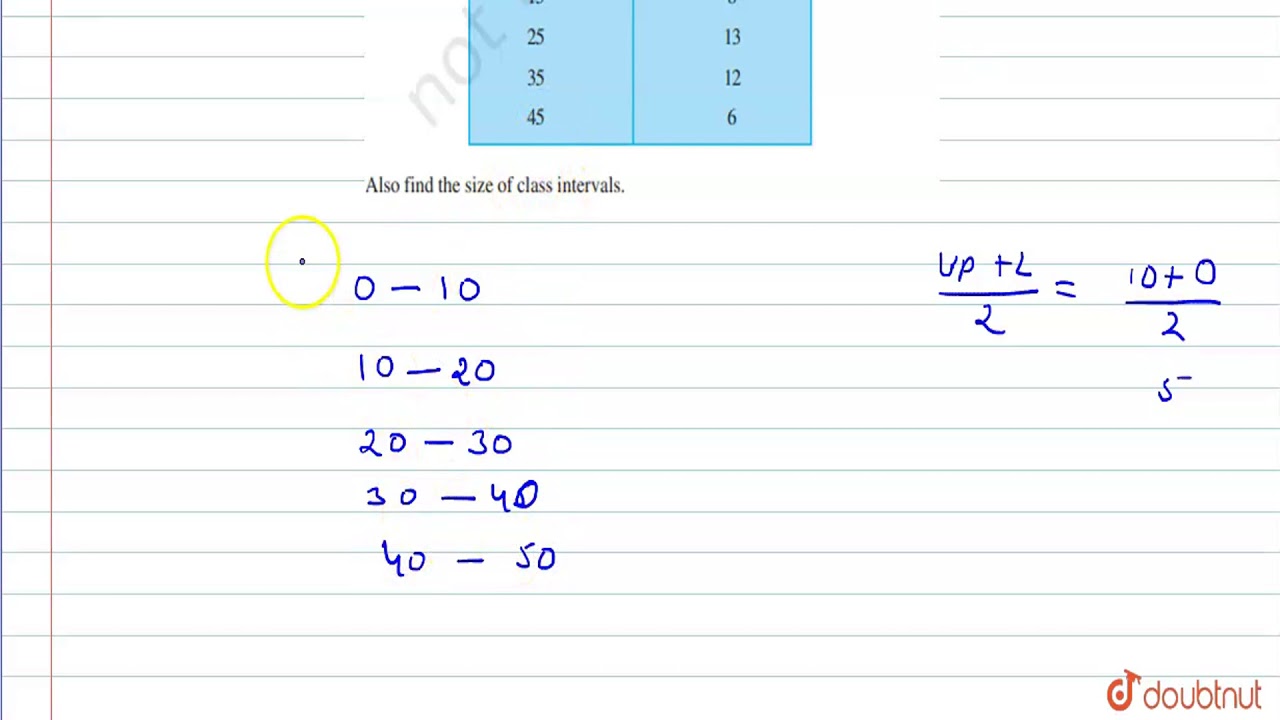 25 13
35 12
45 6
not
Also find the size of class intervals.
0 - 10
10 - 20
20 - 30
30 - 40
40 - 50
up + L / 2 = 10 + 0 / 2
5
doubtnut